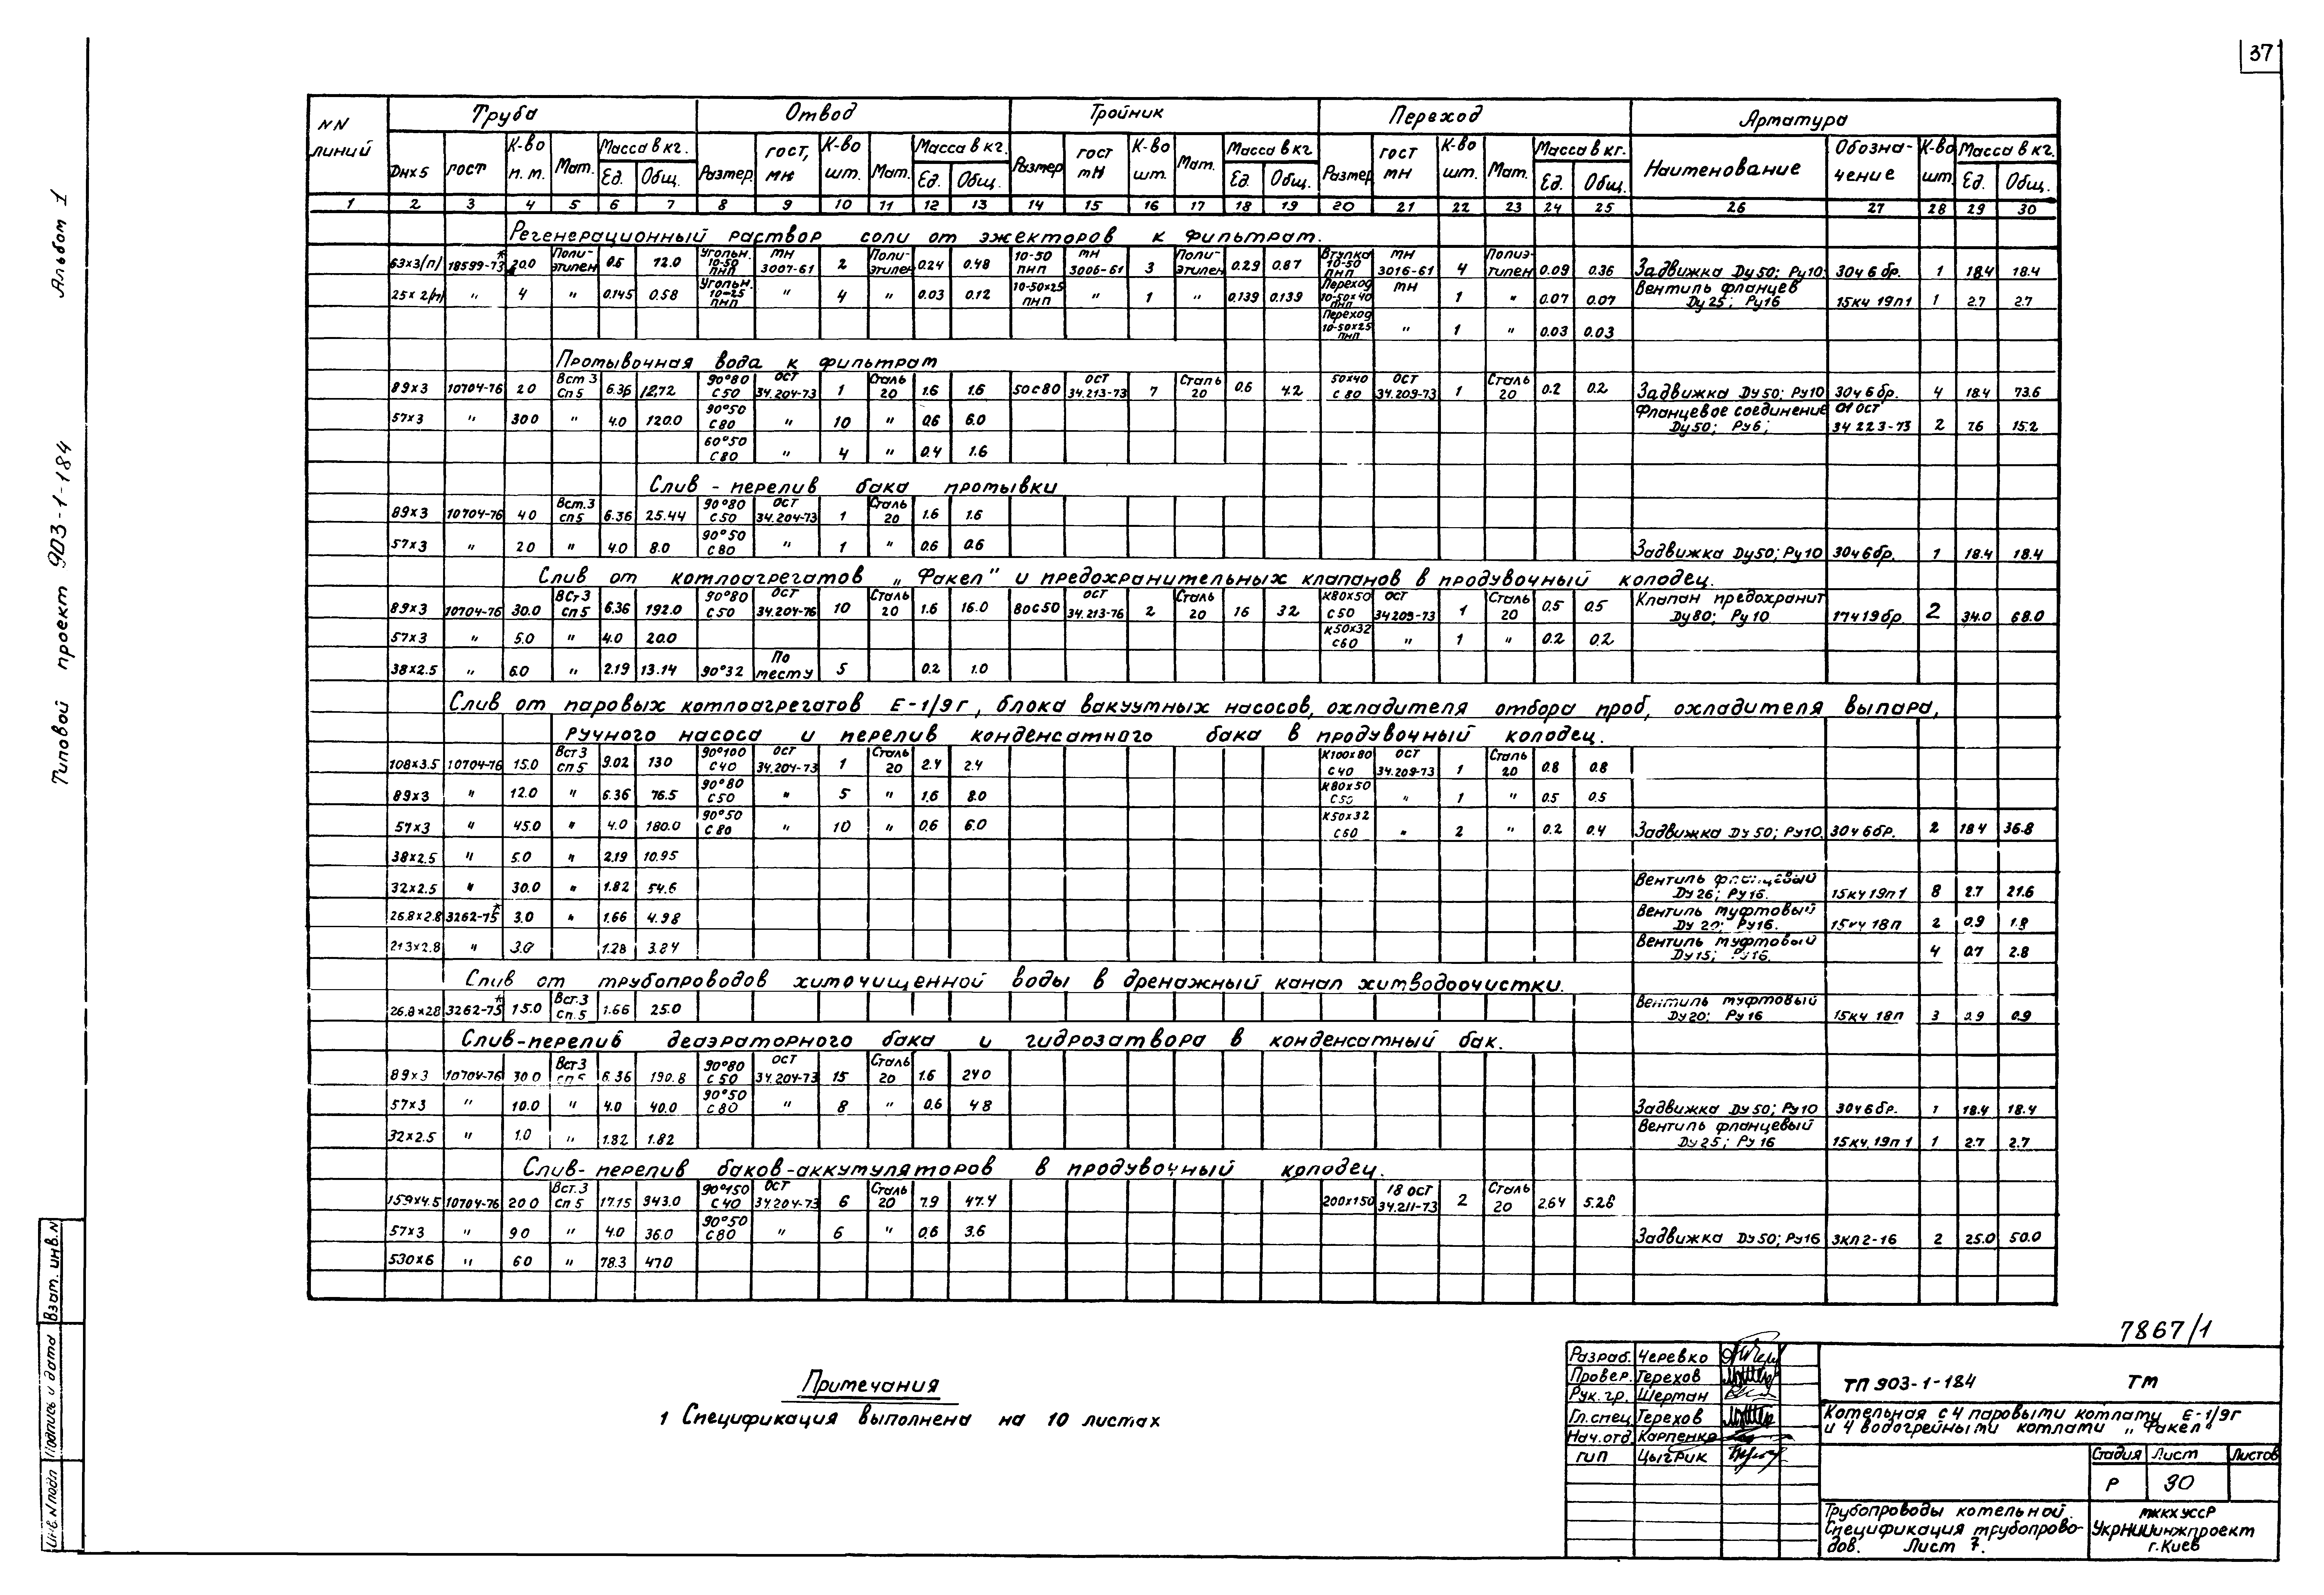 37
Альбом 1
Типовой проект 903-1-184
NN линий | Труба | Отвод | Тройник | Переход | Арматура
Дн×S | ГОСТ | К-во п.м. | Мат. | Масса в кг. Ед. Общ. | Размер | ГОСТ, МН | К-во шт. | Мат. | Масса в кг. Ед. Общ. | Размер | ГОСТ МН | К-во шт. | Мат. | Масса в кг Ед. Общ. | Размер | ГОСТ МН | К-во шт. | Мат. | Масса в кг. Ед. Общ. | Наименование | Обозначение | К-во шт. | Масса в кг. Ед. Общ.
1 2 3 4 5 6 7 8 9 10 11 12 13 14 15 16 17 18 19 20 21 22 23 24 25 26 27 28 29 30
Регенерационный раствор соли от эжекторов к фильтрам.
63×3(п) 18599-73* 20.0 Полиэтилен 0.6 12.0 Угольн. 10-50 ПНП МН 3007-61 2 Полиэтилен 0.24 0.48 10-50 ПНП МН 3006-61 3 Полиэтилен 0.29 0.87 Втулка 10-50 ПНП МН 3016-61 4 Полиэтилен 0.09 0.36 Задвижка Ду50; Ру10 30ч6бр. 1 18.4 18.4
25×2(п) " 4 " 0.145 0.58 Угольн. 10-25 ПНП " 4 " 0.03 0.12 10-50×25 ПНП " 1 " 0.139 0.139 Переход 10-50×40 ПНП МН 1 " 0.07 0.07 Вентиль фланцев Ду25; Ру16 15кч19п1 1 2.7 2.7
Переход 10-50×25 ПНП " 1 " 0.03 0.03
Промывочная вода к фильтрам
89×3 10704-76 2.0 Вст3 Сп5 6.36 12.72 90°80 С50 ОСТ 34.204-73 1 Сталь 20 1.6 1.6 50С80 ОСТ 34.213-73 7 Сталь 20 0.6 4.2 50×40 С80 ОСТ 34.209-73 1 Сталь 20 0.2 0.2 Задвижка Ду50; Ру10 30ч6бр. 4 18.4 73.6
57×3 " 30.0 " 4.0 120.0 90°50 С80 " 10 " 0.6 6.0 Фланцевое соединение Ду50; Ру6; 01 ОСТ 34 223-73 2 7.6 15.2
60°50 С80 " 4 " 0.4 1.6
Слив - перелив бака промывки
89×3 10704-76 4.0 Вст.3 сп5 6.36 25.44 90°80 С50 ОСТ 34.204-73 1 Сталь 20 1.6 1.6
57×3 " 2.0 " 4.0 8.0 90°50 С80 " 1 " 0.6 0.6 Задвижка Ду50; Ру10 30ч6бр. 1 18.4 18.4
Слив от котлоагрегатов „Факел" и предохранительных клапанов в продувочный колодец.
89×3 10704-76 30.0 ВСт3 сп5 6.36 192.0 90°80 С50 ОСТ 34.204-76 10 Сталь 20 1.6 16.0 80С50 ОСТ 34.213-76 2 Сталь 20 16 32 К80×50 С50 ОСТ 34209-73 1 Сталь 20 0.5 0.5 Клапан предохранит Ду80; Ру10 17ч19бр. 2 34.0 68.0
57×3 " 5.0 " 4.0 20.0 К50×32 С60 " 1 " 0.2 0.2
38×2.5 " 6.0 " 2.19 13.14 90°32 По месту 5 0.2 1.0
Слив от паровых котлоагрегатов Е-1/9г, блока вакуумных насосов, охладителя отбора проб, охладителя выпара,
ручного насоса и перелив конденсатного бака в продувочный колодец.
108×3.5 10704-76 15.0 Вст3 сп5 9.02 130 90°100 С40 ОСТ 34.204-73 1 Сталь 20 2.4 2.4 К100×80 С40 ОСТ 34.209-73 1 Сталь 20 0.8 0.8
89×3 " 12.0 " 6.36 76.5 90°80 С50 " 5 " 1.6 8.0 К80×50 С50 " 1 " 0.5 0.5
57×3 " 45.0 " 4.0 180.0 90°50 С80 " 10 " 0.6 6.0 К50×32 С60 " 2 " 0.2 0.4 Задвижка Ду50; Ру10 30ч6бр. 2 18.4 36.8
38×2.5 " 5.0 " 2.19 10.95
32×2.5 " 30.0 " 1.82 54.6 Вентиль фланцевый Ду26; Ру16. 15кч19п1 8 2.7 21.6
26.8×2.8 3262-75* 3.0 " 1.66 4.98 Вентиль муфтовый Ду20; Ру16. 15кч18п 2 0.9 1.8
21.3×2.8 " 3.0 1.28 3.84 Вентиль муфтовый Ду15; Ру16. 4 0.7 2.8
Слив от трубопроводов химочищенной воды в дренажный канал химводоочистки.
26.8×2.8 3262-75* 15.0 Вст.3 Сп.5 1.66 25.0 Вентиль муфтовый Ду20; Ру16 15кч18п 3 0.9 0.9
Слив-перелив деаэраторного бака и гидрозатвора в конденсатный бак.
89×3 10704-76 30.0 Вст3 сп5 6.36 190.8 90°80 С50 ОСТ 34.204-73 15 Сталь 20 1.6 24.0
57×3 " 10.0 " 4.0 40.0 90°50 С80 " 8 " 0.6 4.8 Задвижка Ду50; Ру10 30ч6бр. 1 18.4 18.4
32×2.5 " 1.0 " 1.82 1.82 Вентиль фланцевый Ду25; Ру16 15кч.19п1 1 2.7 2.7
Слив-перелив баков-аккумуляторов в продувочный колодец.
159×4.5 10704-76 20.0 Вст.3 Сп5 17.15 343.0 90°150 С40 ОСТ 34.204-73 6 Сталь 20 7.9 47.4 200×150 18 ОСТ 34.211-73 2 Сталь 20 2.64 5.28
57×3 " 9.0 " 4.0 36.0 90°50 С80 " 6 " 0.6 3.6 Задвижка Ду50; Ру16 3КЛ2-16 2 25.0 50.0
530×6 " 6.0 " 78.3 470
Примечания
1 Спецификация выполнена на 10 листах
7867/1
Разраб. Черевко
Провер. Терехов
Рук. гр. Шерман
Гл.спец Терехов
Нач.отд. Карпенко
ГИП Цыгрик
ТП 903-1-184 ТМ
Котельная с 4 паровыми котлами Е-1/9г
и 4 водогрейными котлами „Факел"
Стадия Лист Листов
Р 30
Трубопроводы котельной.
Спецификация трубопрово-
дов. Лист 7.
МЖКХ УССР
УкрНИИинжпроект
г.Киев
Взам. инв.N
Подпись и дата
Инв.N подл